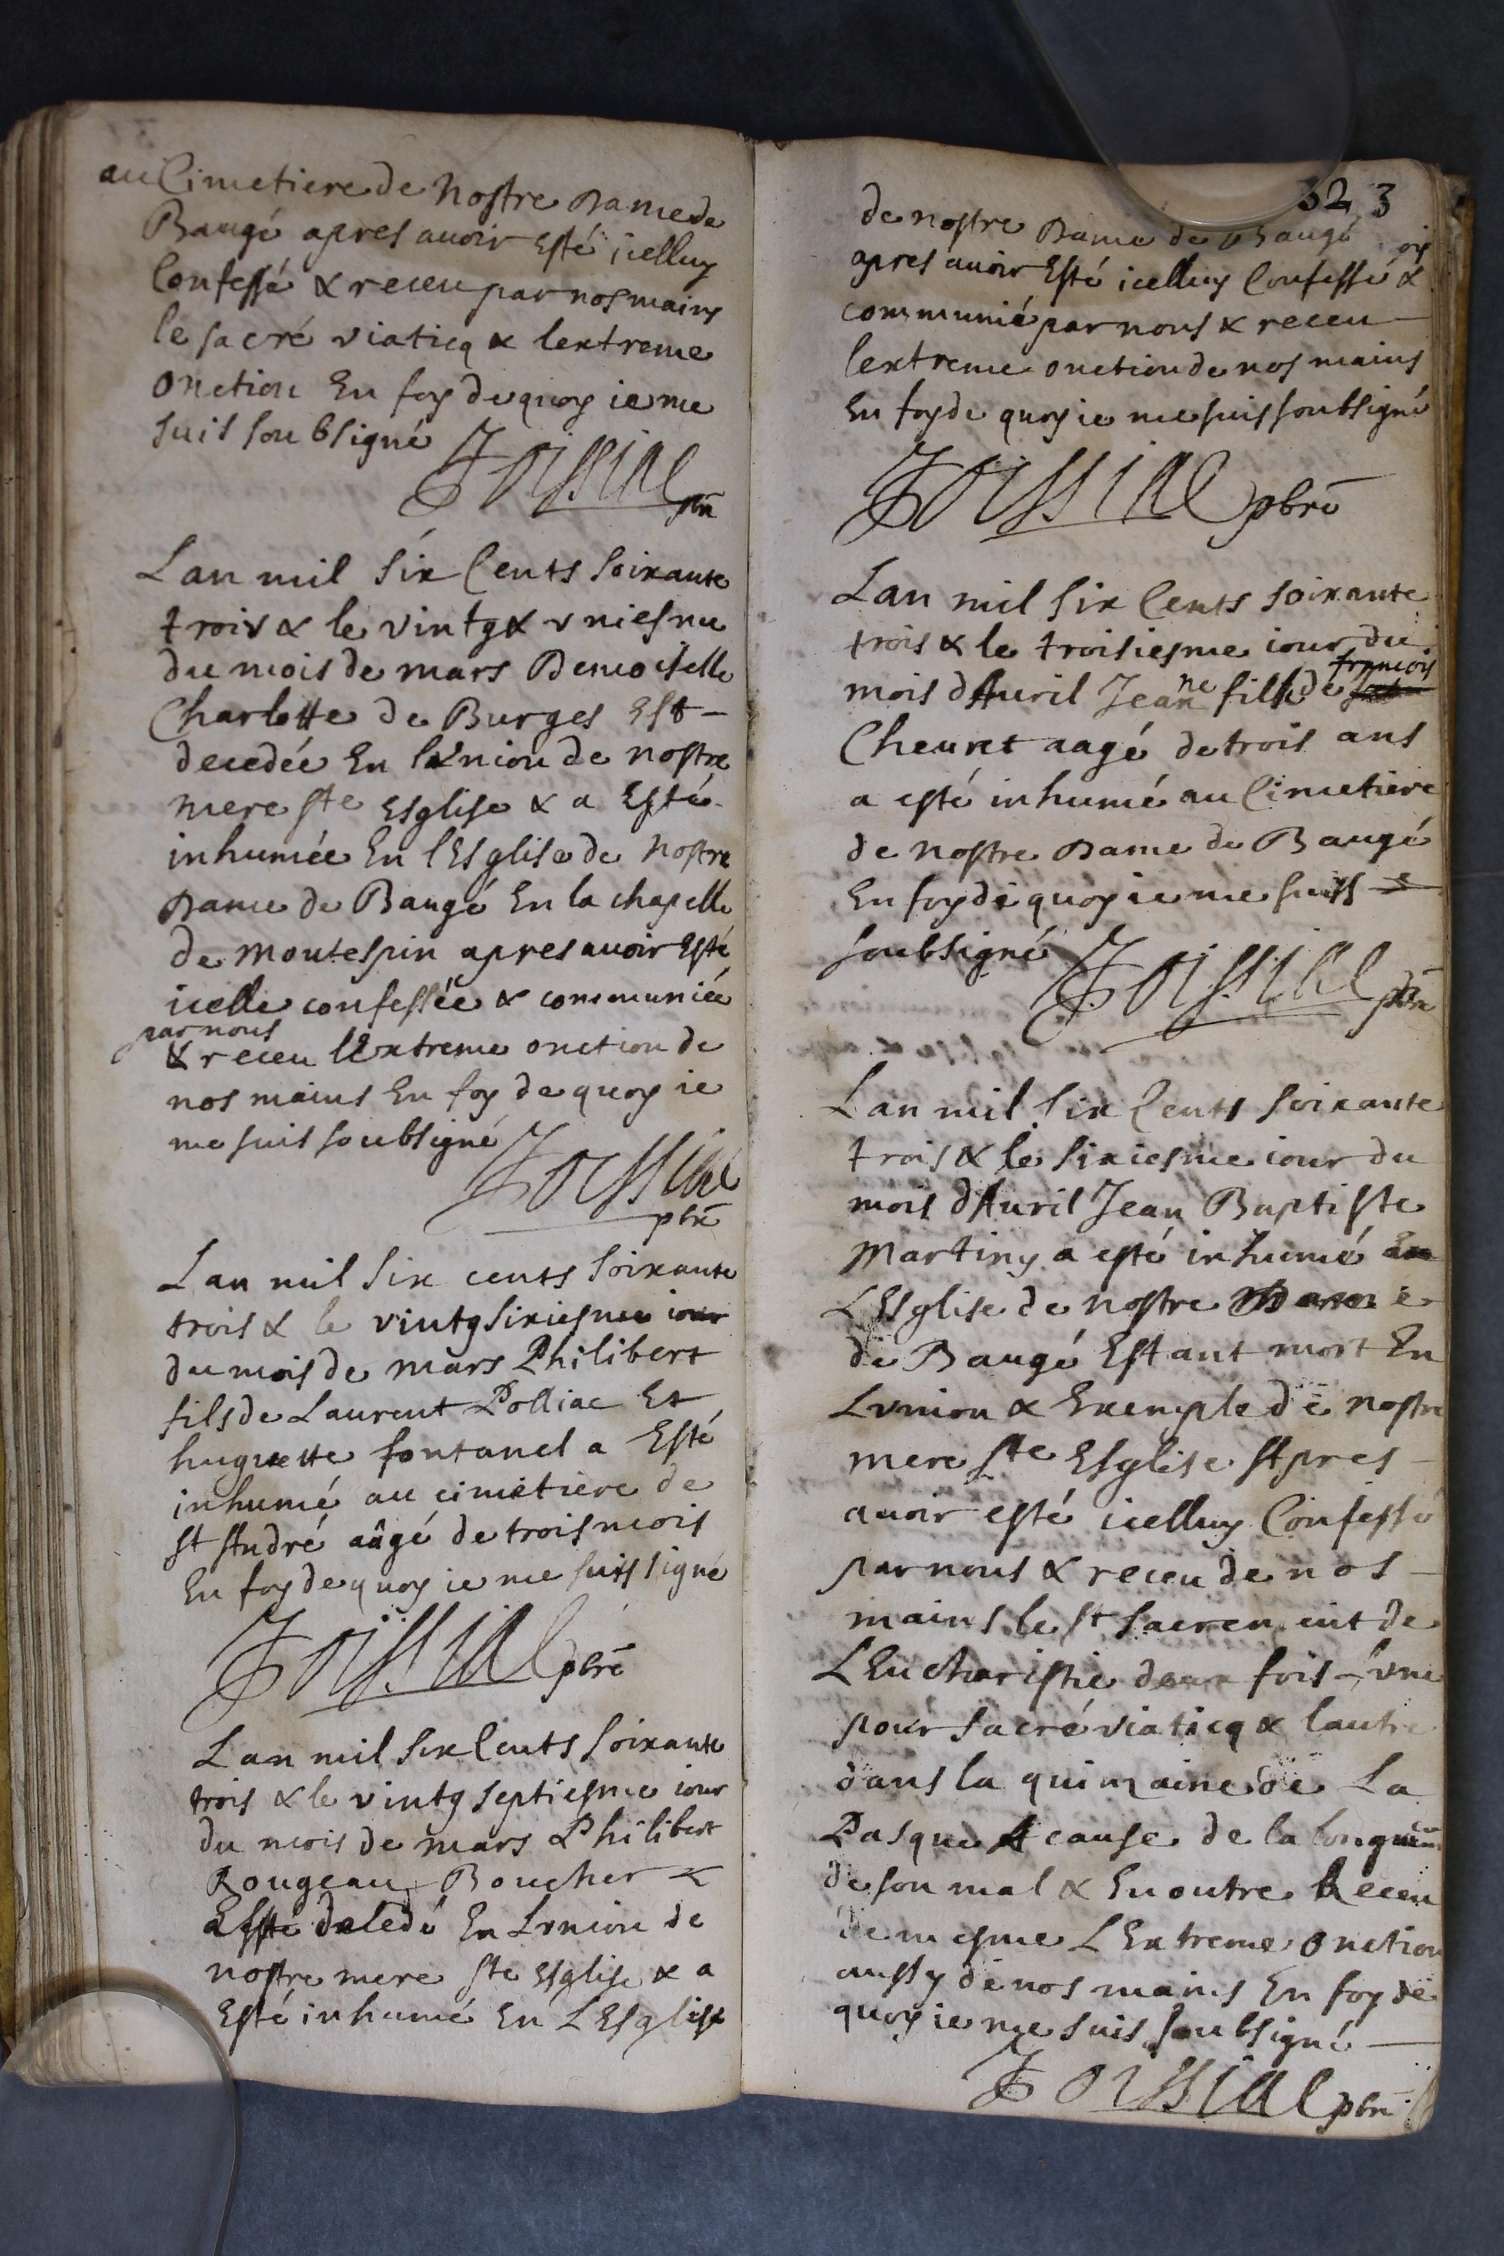 au Cimetiere de Nostre Dame de
Baugé apres auoir Esté icelluy
Confessé & receu par nos mains
le sacré viaticq & lextreme
onction En foy de quoy ie me
suis soubsigné
Foissiac pbre
Lan mil six Cents soixante
trois & le vintg & vniesme
du mois de mars Demoiselle
Charlotte de Burges Est
decedée En lvnion de nostre
mere ste Esglise & a Esté
inhumée En lEsglise de Nostre
Dame de Baugé En la chapelle
de Montespin apres auoir Esté
icelle confessée & communiée
par nous
& receu lExtreme onction de
nos mains En foy de quoy ie
me suis soubsigné
Foissiac
pbre
Lan mil six cents soixante
trois & le vintg sixiesme iour
du mois de mars Philibert
fils de Laurent Polliac Et
huguette fontanel a Esté
inhumé au cimetiere de
st André aâgé de trois mois
En foy de quoy ie me suis signé
Foissiac pbre
Lan mil six Cents soixante
trois & le vintg septiesme iour
du mois de mars Philibert
Rougeau Boucher
a Esté decedé En Lvnion de
nostre mere ste Esglise & a
Esté inhumé En LEsglise
323
de nostre Dame de Baugé
apres auoir Esté icelluy Confessé &
communié par nous & receu
lextreme onction de nos mains
En foy de quoy ie me suis soubsigné
Foissiac pbre
Lan mil six Cents soixante
trois & le troisiesme iour du
francois
mois dAuril Jeanne fille de
Cheuret aagé de trois ans
a esté inhumé au Cimetiere
de nostre Dame de Baugé
En foy de quoy ie me suis
soubsigné
Foissiac pbre
Lan mil six Cents soixante
trois & le sixiesme iour du
mois dAuril Jean Baptiste
Martiny a esté inhumé En
LEsglise de nostre Dame
de Baugé Estant mort En
Lvnion & Exemple de nostre
mere ste Esglise Apres
auoir esté icelluy Confessé
par nous & receu de nos
mains le st sacrement de
LEucharistie deux fois lvne
pour sacré viaticq & lautre
dans la quinzaine de La
Pasque A cause de la longueur
de son mal & En outre Receu
de mesme LExtreme onction
aussy de nos mains En foy de
quoy ie me suis soubsigné
Foissiac pbre